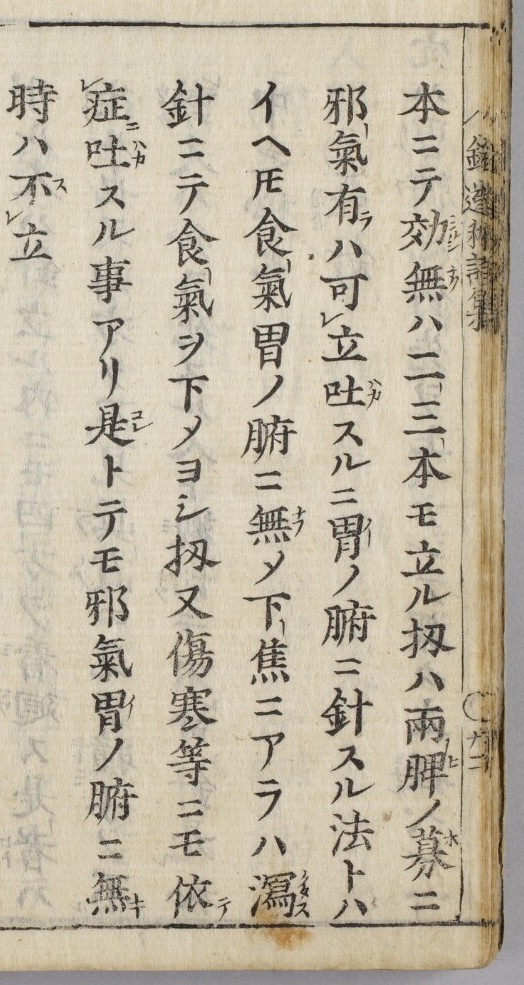 本ニテ効無ハ二三本モ立ル扨ハ兩脾ノ募ニ
邪氣有ラハ可レ立吐スルニ胃ノ腑ニ針スル法トハ
イヘ𪜈食氣胃ノ腑ニ無メ下焦ニアラハ瀉
針ニテ食氣ヲ下メヨシ扨又傷寒等ニモ依テ
レ症ニ吐スル事アリ是トテモ邪氣胃ノ腑ニ無キ
時ハ不レ立